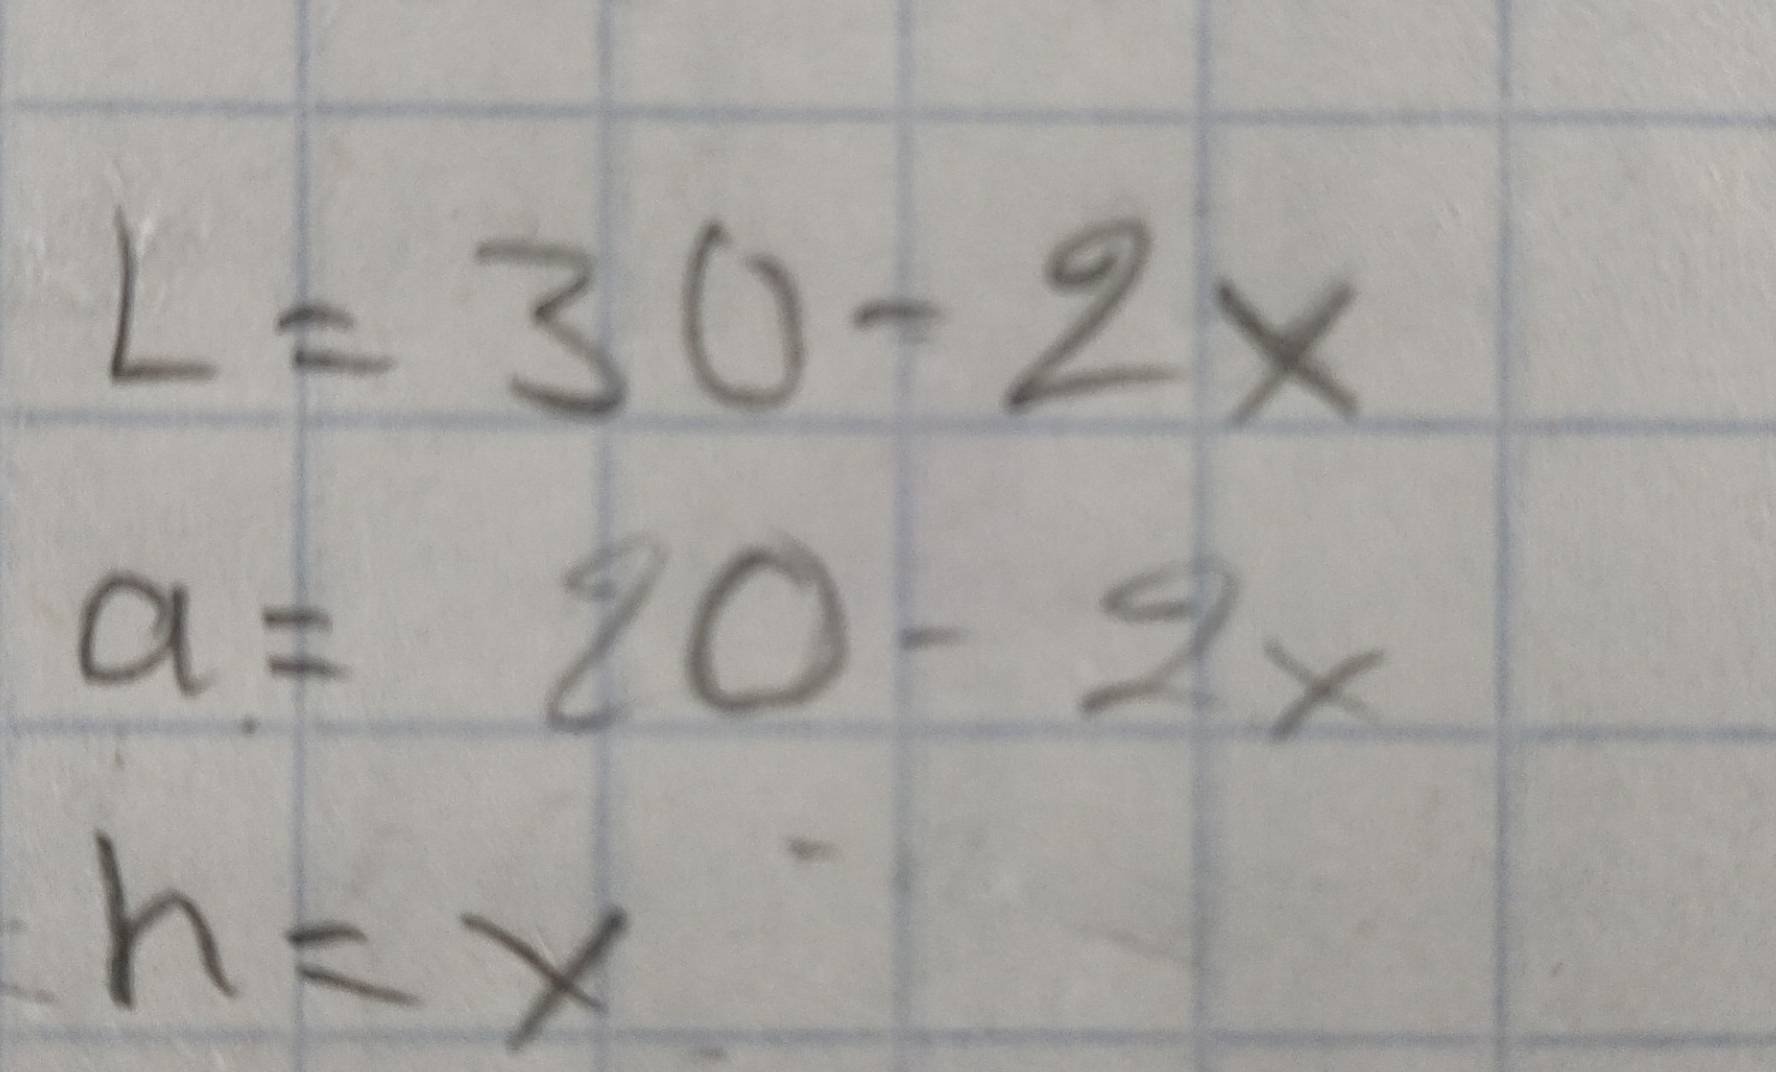 L = 30 - 2x
a = 20 - 2x
h = x